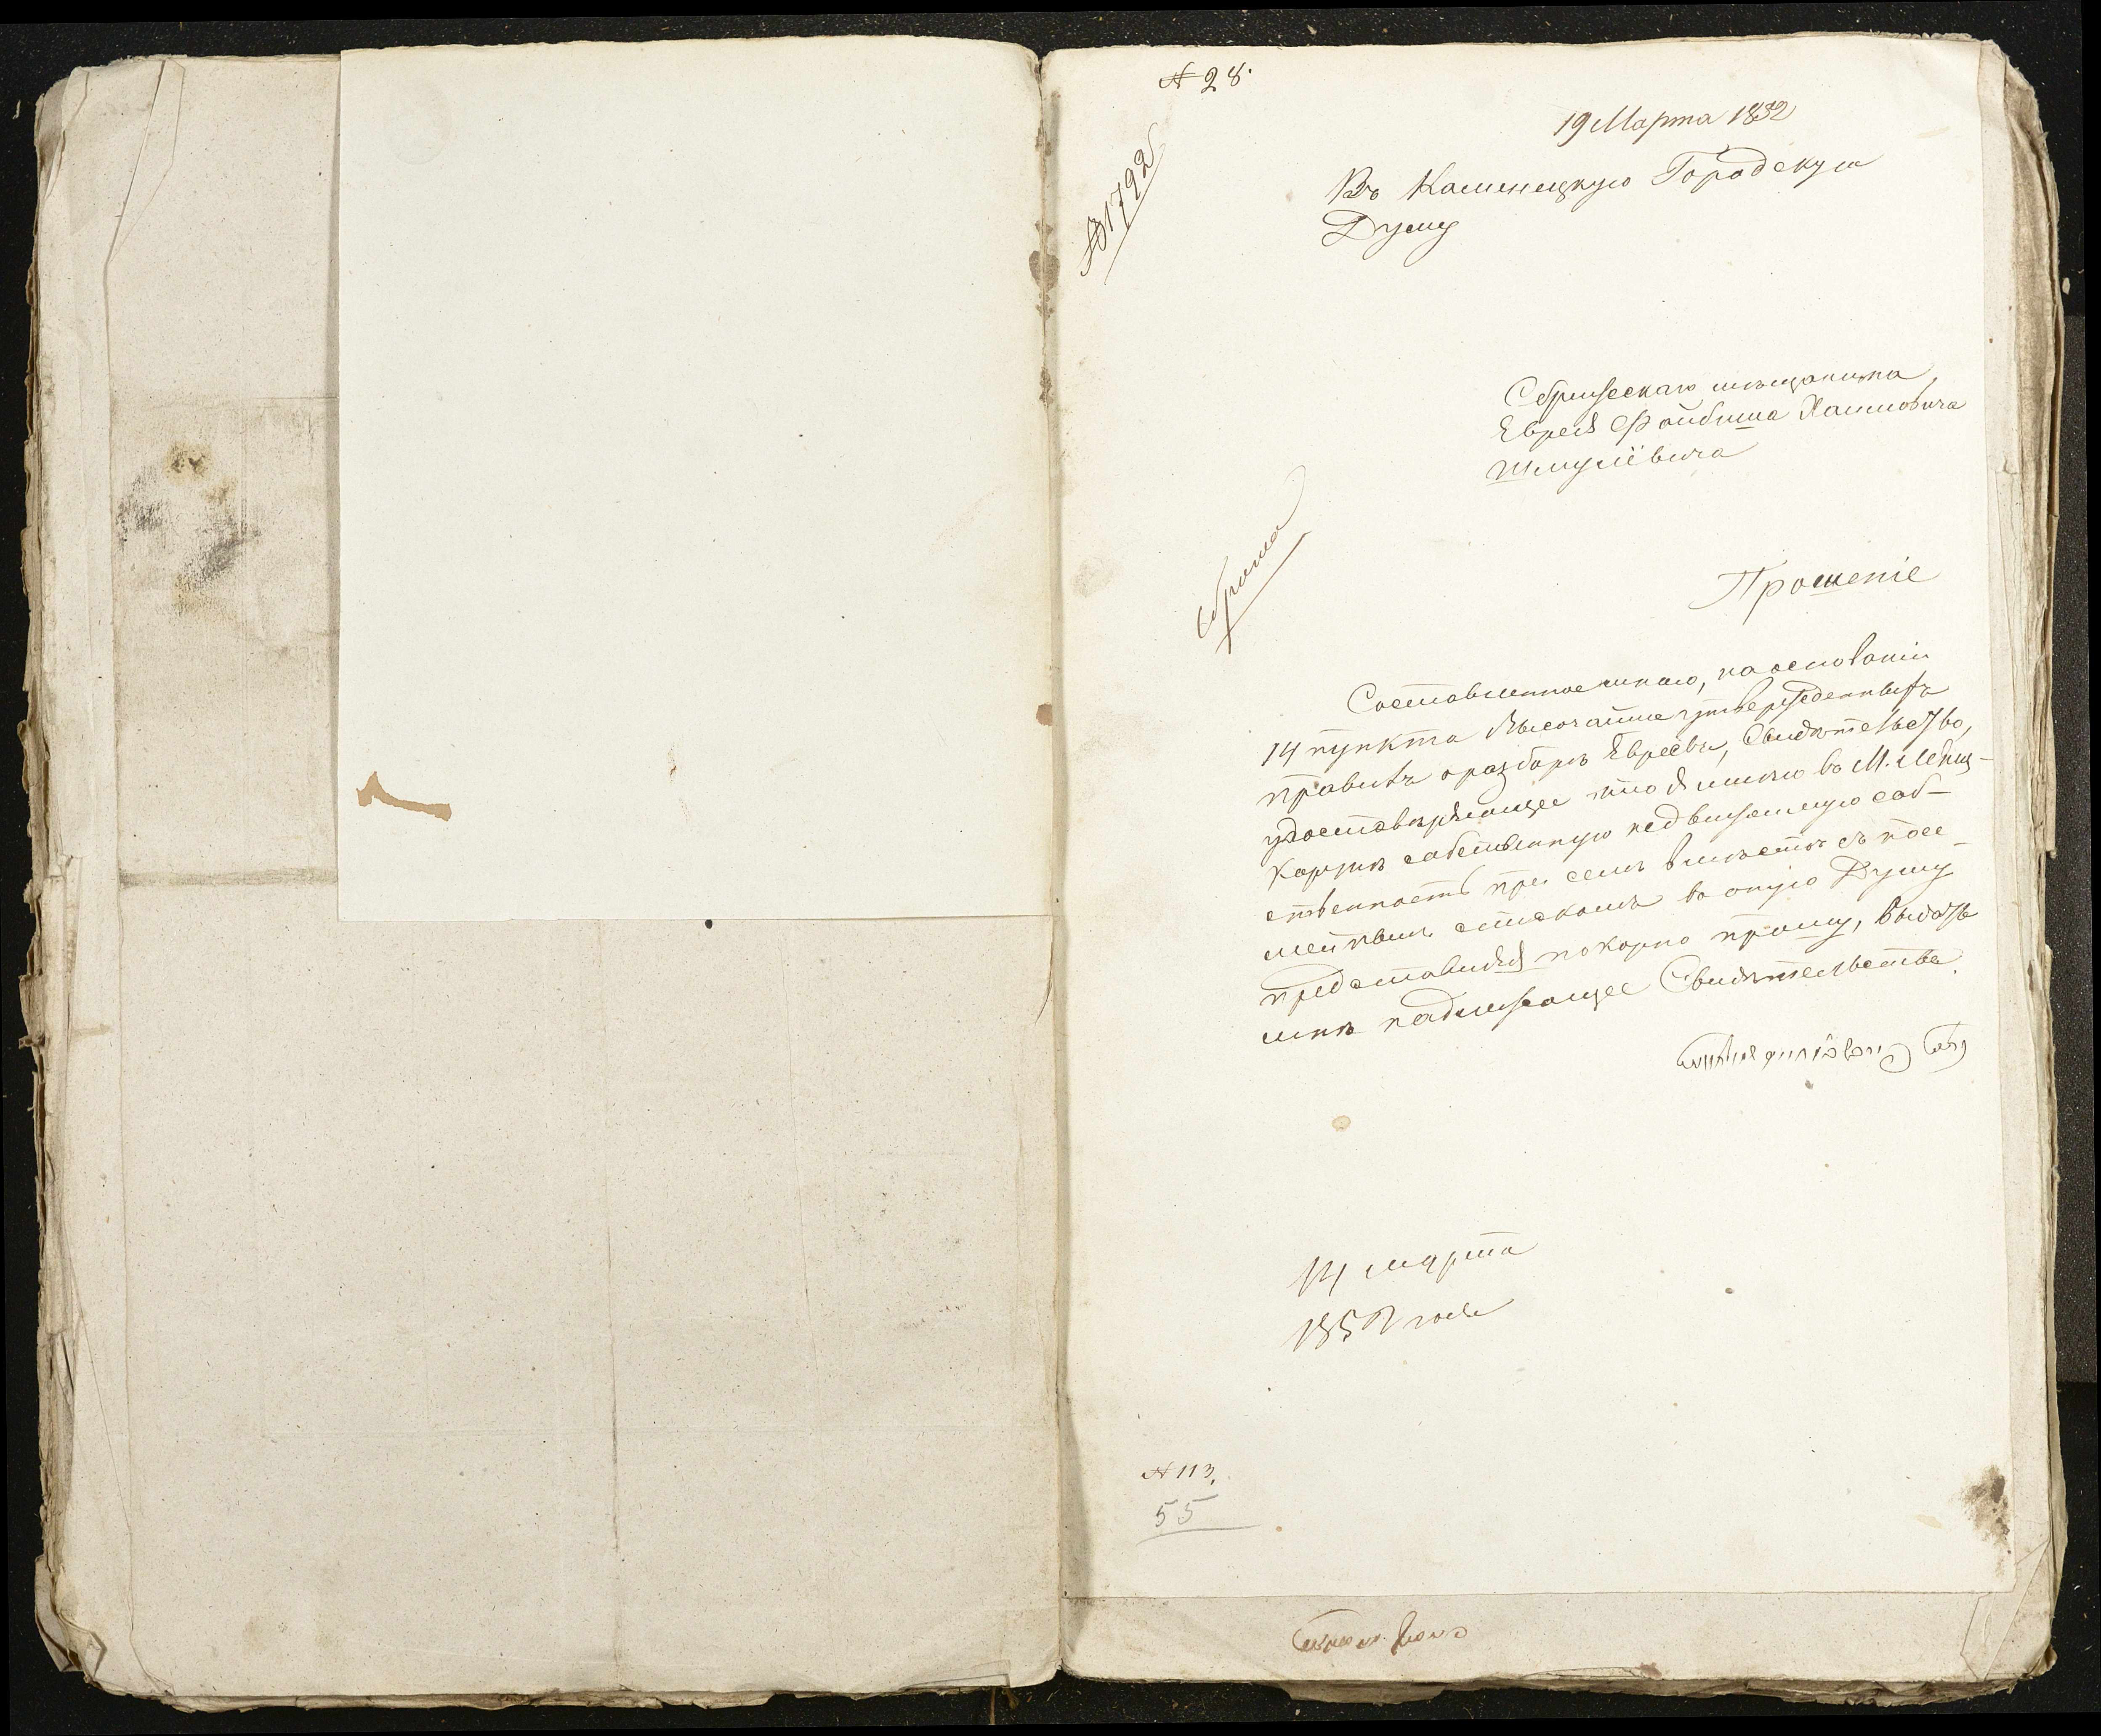 № 28.
19 Марта 1852
№ 1792
Въ Каменецкую Городскую
Думу
мѣщанина
Еврея Файбиша Хаимовича
Шмулёвича
Прошеніе
Составленное мною, на основаніи
14 пункта Высочайше утвержденныхъ
правилъ о разборѣ Евреевъ, Свидѣтельство,
удостовѣряющее что я имѣю въ М.
собственную недвижимую соб-
ственность при семъ вмѣстѣ съ
въ оную Думу
представляя покорно прошу, выдать
мнѣ надлежащее Свидѣтельство.
14 марта
1852 года
№ 113.
55